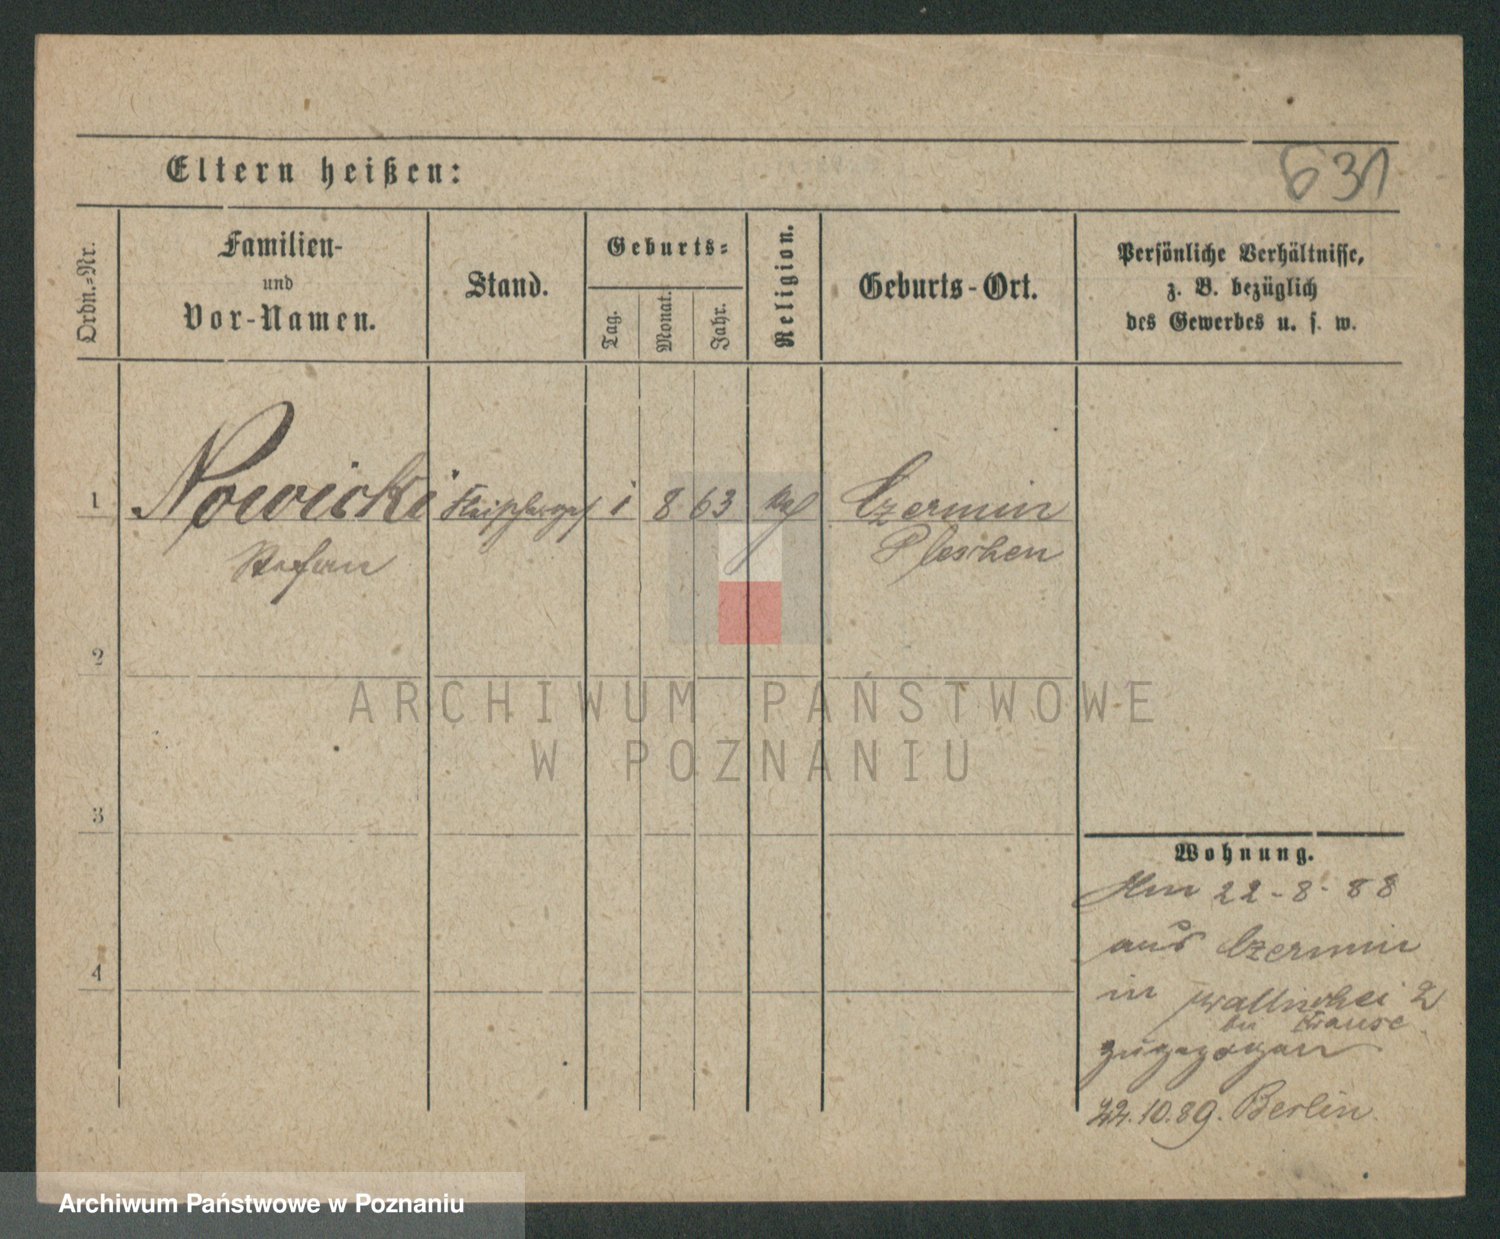 Eltern heißen:
631
Ordn.-Nr.
Familien-
und
Vor-Namen.
Stand.
Geburts-
Tag.
Monat.
Jahr.
Religion.
Geburts-Ort.
Persönliche Verhältnisse,
z. B. bezüglich
des Gewerbes u. s. w.
1
Nowicki
1 8 63
Czermin
Stefan
Pleschen
2
ARCHIWUM PAŃSTWOWE
W POZNANIU
3
4
Wohnung.
Am 22-8-88
aus Czermin
in Wallischei 2
bei Krause
zugezogen
22.10.89. Berlin
Archiwum Państwowe w Poznaniu